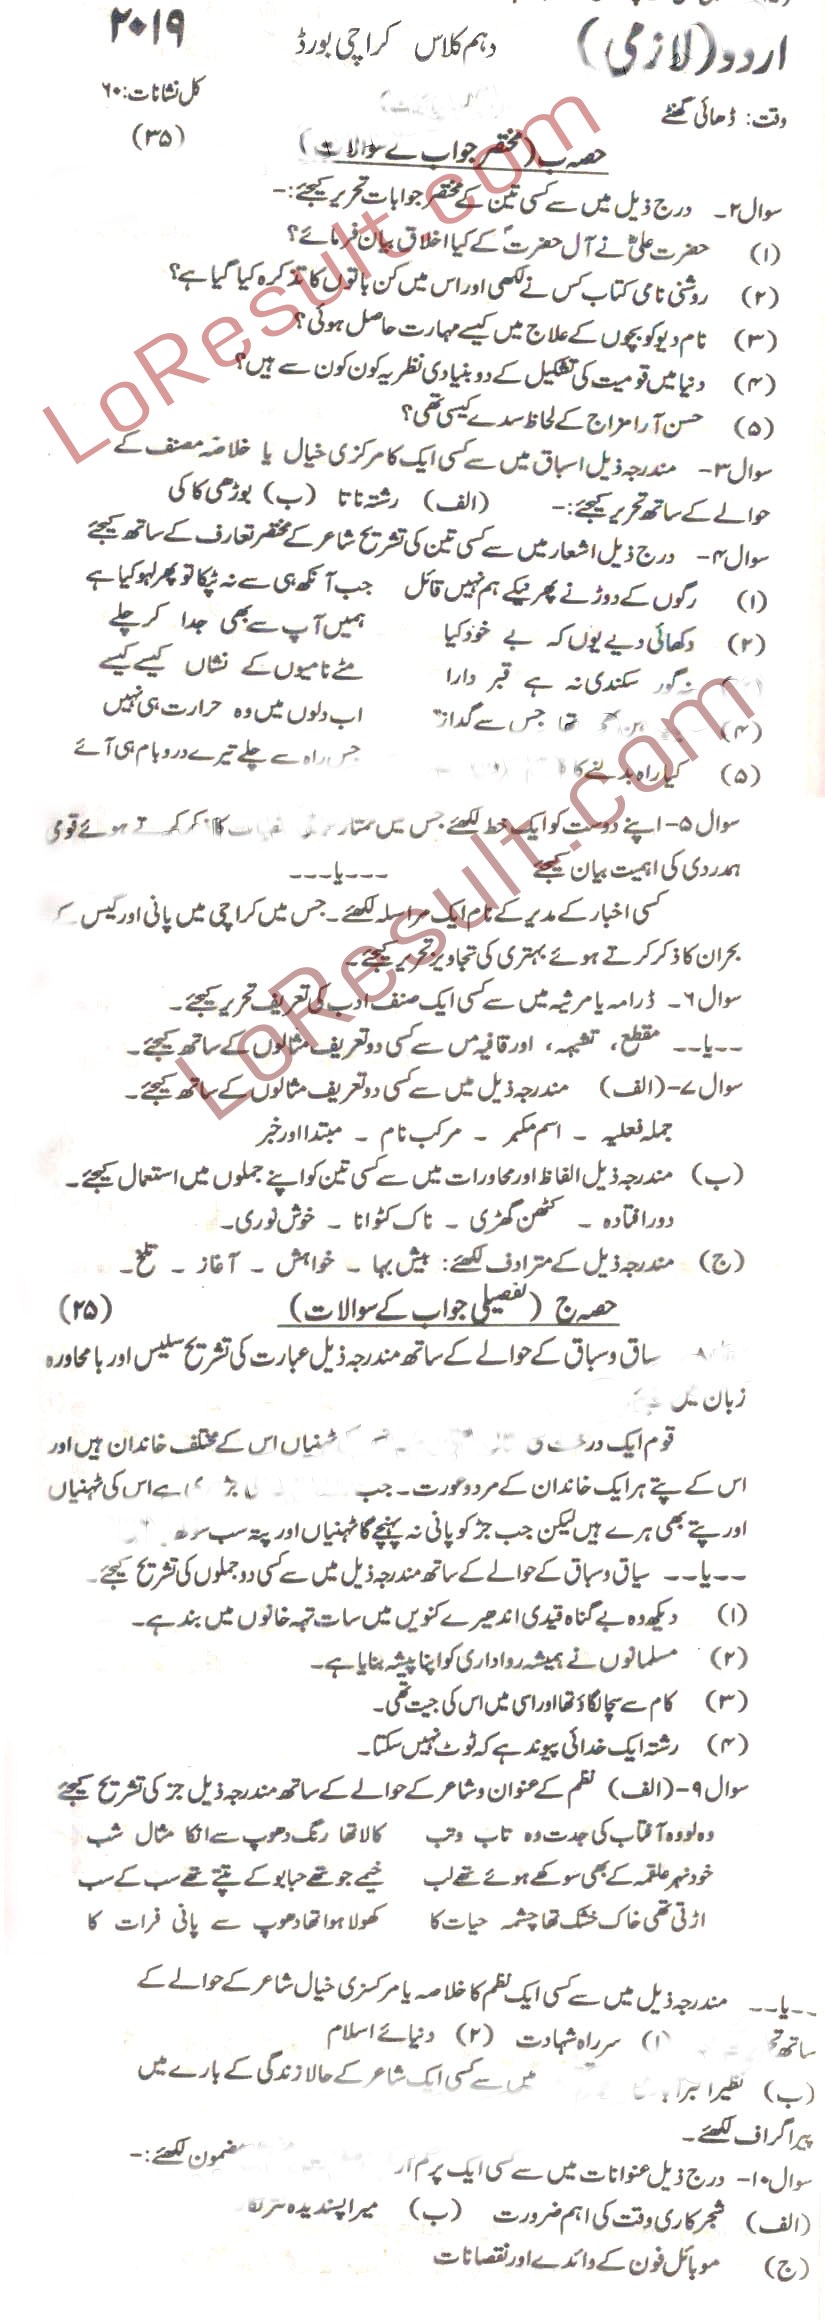 اردو (لازمی) دہم کلاس کراچی بورڈ ۲۰۱۹
وقت: ڈھائی گھنٹے کل نشانات: ۶۰
حصہ ب (مختصر جواب کے سوالات) (۳۵)
سوال ۲۔ درج ذیل میں سے کسی تین کے مختصر جوابات تحریر کیجئے:-
(۱) حضرت علیؓ نے آں حضرتؐ کے کیا اخلاق بیان فرمائے؟
(۲) روشنی نامی کتاب کس نے لکھی اور اس میں کن باتوں کا تذکرہ کیا گیا ہے؟
(۳) نام دیو کو بچوں کے علاج میں کیسے مہارت حاصل ہوئی؟
(۴) دنیا میں قومیت کی تشکیل کے دو بنیادی نظریہ کون کون سے ہیں؟
(۵) حسن آرا مزاج کے لحاظ سدے کیسی تھی؟
سوال ۳- مندرجہ ذیل اسباق میں سے کسی ایک کا مرکزی خیال یا خلاصہ مصنف کے
حوالے کے ساتھ تحریر کیجئے:- (الف) رشتہ ناتا (ب) بوڑھی کاکی
سوال ۴- درج ذیل اشعار میں سے کسی تین کی تشریح شاعر کے مختصر تعارف کے ساتھ کیجئے
(۱) رگوں کے دوڑنے پھرنیکے ہم نہیں قائل جب آنکھ ہی سے نہ ٹپکا تو پھر لہو کیا ہے
(۲) دکھائی دیے یوں کہ بے خود کیا ہمیں آپ سے بھی جدا کر چلے
نہ گور سکندی نہ ہے قبر دارا مٹے نامیوں کے نشاں کیسے کیسے
(۴) تھا جس سے گداز اب دلوں میں وہ حرارت ہی نہیں
(۵) کیا راہ بدلنے کا جس راہ سے چلے تیرے در و بام ہی آئے
سوال ۵- اپنے دوست کو ایک خط لکھئے جس میں کرتے ہوئے قومی
ہمدردی کی اہمیت بیان کیجئے ---یا---
کسی اخبار کے مدیر کے نام ایک مراسلہ لکھئے۔ جس میں کراچی میں پانی اور گیس کے
بحران کا ذکر کرتے ہوئے بہتری کی تجاویز تحریر کیجئے۔
سوال ۶۔ ڈرامہ یا مرثیہ میں سے کسی ایک صنف ادب کی تعریف تحریر کیجئے۔
--یا-- مقطع، تشبیہ، اور قافیہ میں سے کسی دو تعریف مثالوں کے ساتھ کیجئے۔
سوال ۷- (الف) مندرجہ ذیل میں سے کسی دو تعریف مثالوں کے ساتھ کیجئے۔
جملہ فعلیہ - اسم مکبر - مرکب نام - مبتدا اور خبر
(ب) مندرجہ ذیل الفاظ اور محاورات میں سے کسی تین کو اپنے جملوں میں استعمال کیجئے۔
دور افتادہ - کٹھن گھڑی - ناک کٹوانا - خوش نوری۔
(ج) مندرجہ ذیل کے مترادف لکھئے: بیش بہا - خواہش - آغاز - تلخ۔
حصہ ج (تفصیلی جواب کے سوالات) (۲۵)
۸- ساق و سباق کے حوالے کے ساتھ مندرجہ ذیل عبارت کی تشریح سلیس اور با محاورہ
زبان میں
قوم ایک درخت ٹہنیاں اس کے مختلف خاندان ہیں اور
اس کے پتے ہر ایک خاندان کے مرد و عورت۔ جب ہے اس کی ٹہنیاں
اور پتے بھی ہرے ہیں لیکن جب جڑ کو پانی نہ پہنچے گا ٹہنیاں اور پتہ سب
--یا-- سیاق و سباق کے حوالے کے ساتھ مندرجہ ذیل میں سے کسی دو جملوں کی تشریح کیجئے۔
(۱) دیکھ وہ بے گناہ قیدی اندھیرے کنویں میں سات تہہ خانوں میں بند ہے۔
(۲) مسلمانوں نے ہمیشہ رواداری کو اپنا پیشہ بنایا ہے۔
(۳) کام سے سچا لگاؤ تھا اور اسی میں اس کی جیت تھی۔
(۴) رشتہ ایک خدائی پیوند ہے کہ ٹوٹ نہیں سکتا۔
سوال ۹- (الف) نظم کے عنوان و شاعر کے حوالے کے ساتھ مندرجہ ذیل جز کی تشریح کیجئے
وہ لو وہ آفتاب کی حدت وہ تاب و تب کالا تھا رنگ دھوپ سے انکا مثال شب
خود نہر علقمہ کے بھی سوکھے ہوئے تھے لب خیمے جو تھے حبابو کے تپتے تھے سب کے سب
اڑتی تھی خاک خشک تھا چشمہ حیات کا کھولا ہوا تھا دھوپ سے پانی فرات کا
--یا-- مندرجہ ذیل میں سے کسی ایک نظم کا خلاصہ یا مرکزی خیال شاعر کے حوالے کے
ساتھ (۱) سر راہ شہادت (۲) دنیائے اسلام
(ب) نظیر میں سے کسی ایک شاعر کے حالا زندگی کے بارے میں
پیرا گراف لکھئے۔
سوال ۱۰- درج ذیل عنوانات میں سے کسی ایک پر مضمون لکھئے:-
(الف) شجر کاری وقت کی اہم ضرورت (ب) میرا پسندیدہ
(ج) موبائل فون کے وائدے اور نقصانات
LoResult.com
LoResult.com